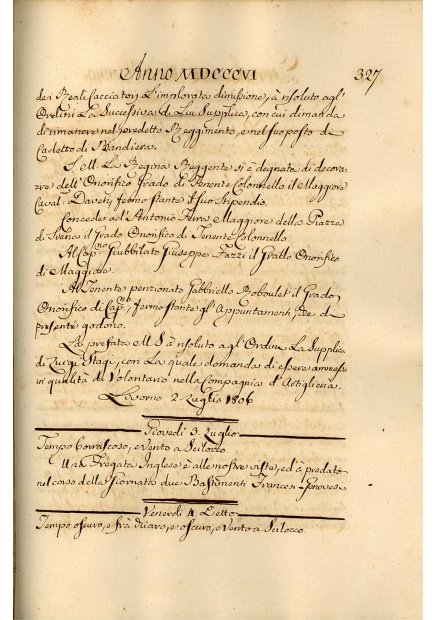 Anno MDCCCVI 327
dei Reali Cacciatori l'implorata dimissione, à risoluto agl'
Ordini La Successiva di Lui Supplica, con cui dimanda
di rimanere nel predetto Reggimento, e nel suo posto di
Cadetto di Bandiera.
S. M. La Regina Reggente si è degnata di decora-
re dell'Onorifico Grado di Tenente Colonnello il Maggiore
Caval: fermo stante il suo Stipendio.
Concede ad Antonio Maggiore della Piazza
di Siena il Grado Onorifico di Tenente Colonnello.
Al Capno Giubbilato Giuseppe Fazzi il Grado Onorifico
di Maggiore.
Al Tenente penzionato Gabbriello il Grado
Onorifico di Capno, fermo stante gl'Appuntamenti, che di
presente godono.
La prefata M. S. à risoluto agl'Ordini La Supplica
di Luigi Stagi, con La quale domanda di essere ammesso
in qualità di Volontario nella Compagnia d'Artiglieria.
Livorno 2 Luglio 1806
Giovedì 3. Luglio
Tempo borrascoso, e Vento a Scilocco
Una Fregata Inglese è alle nostre viste, ed à predato
nel corso della Giornata due Bastimenti Francesi-Genovesi
Venerdì 4. Detto
Tempo oscuro, e frà chiaro, e oscuro, e Vento a Scilocco